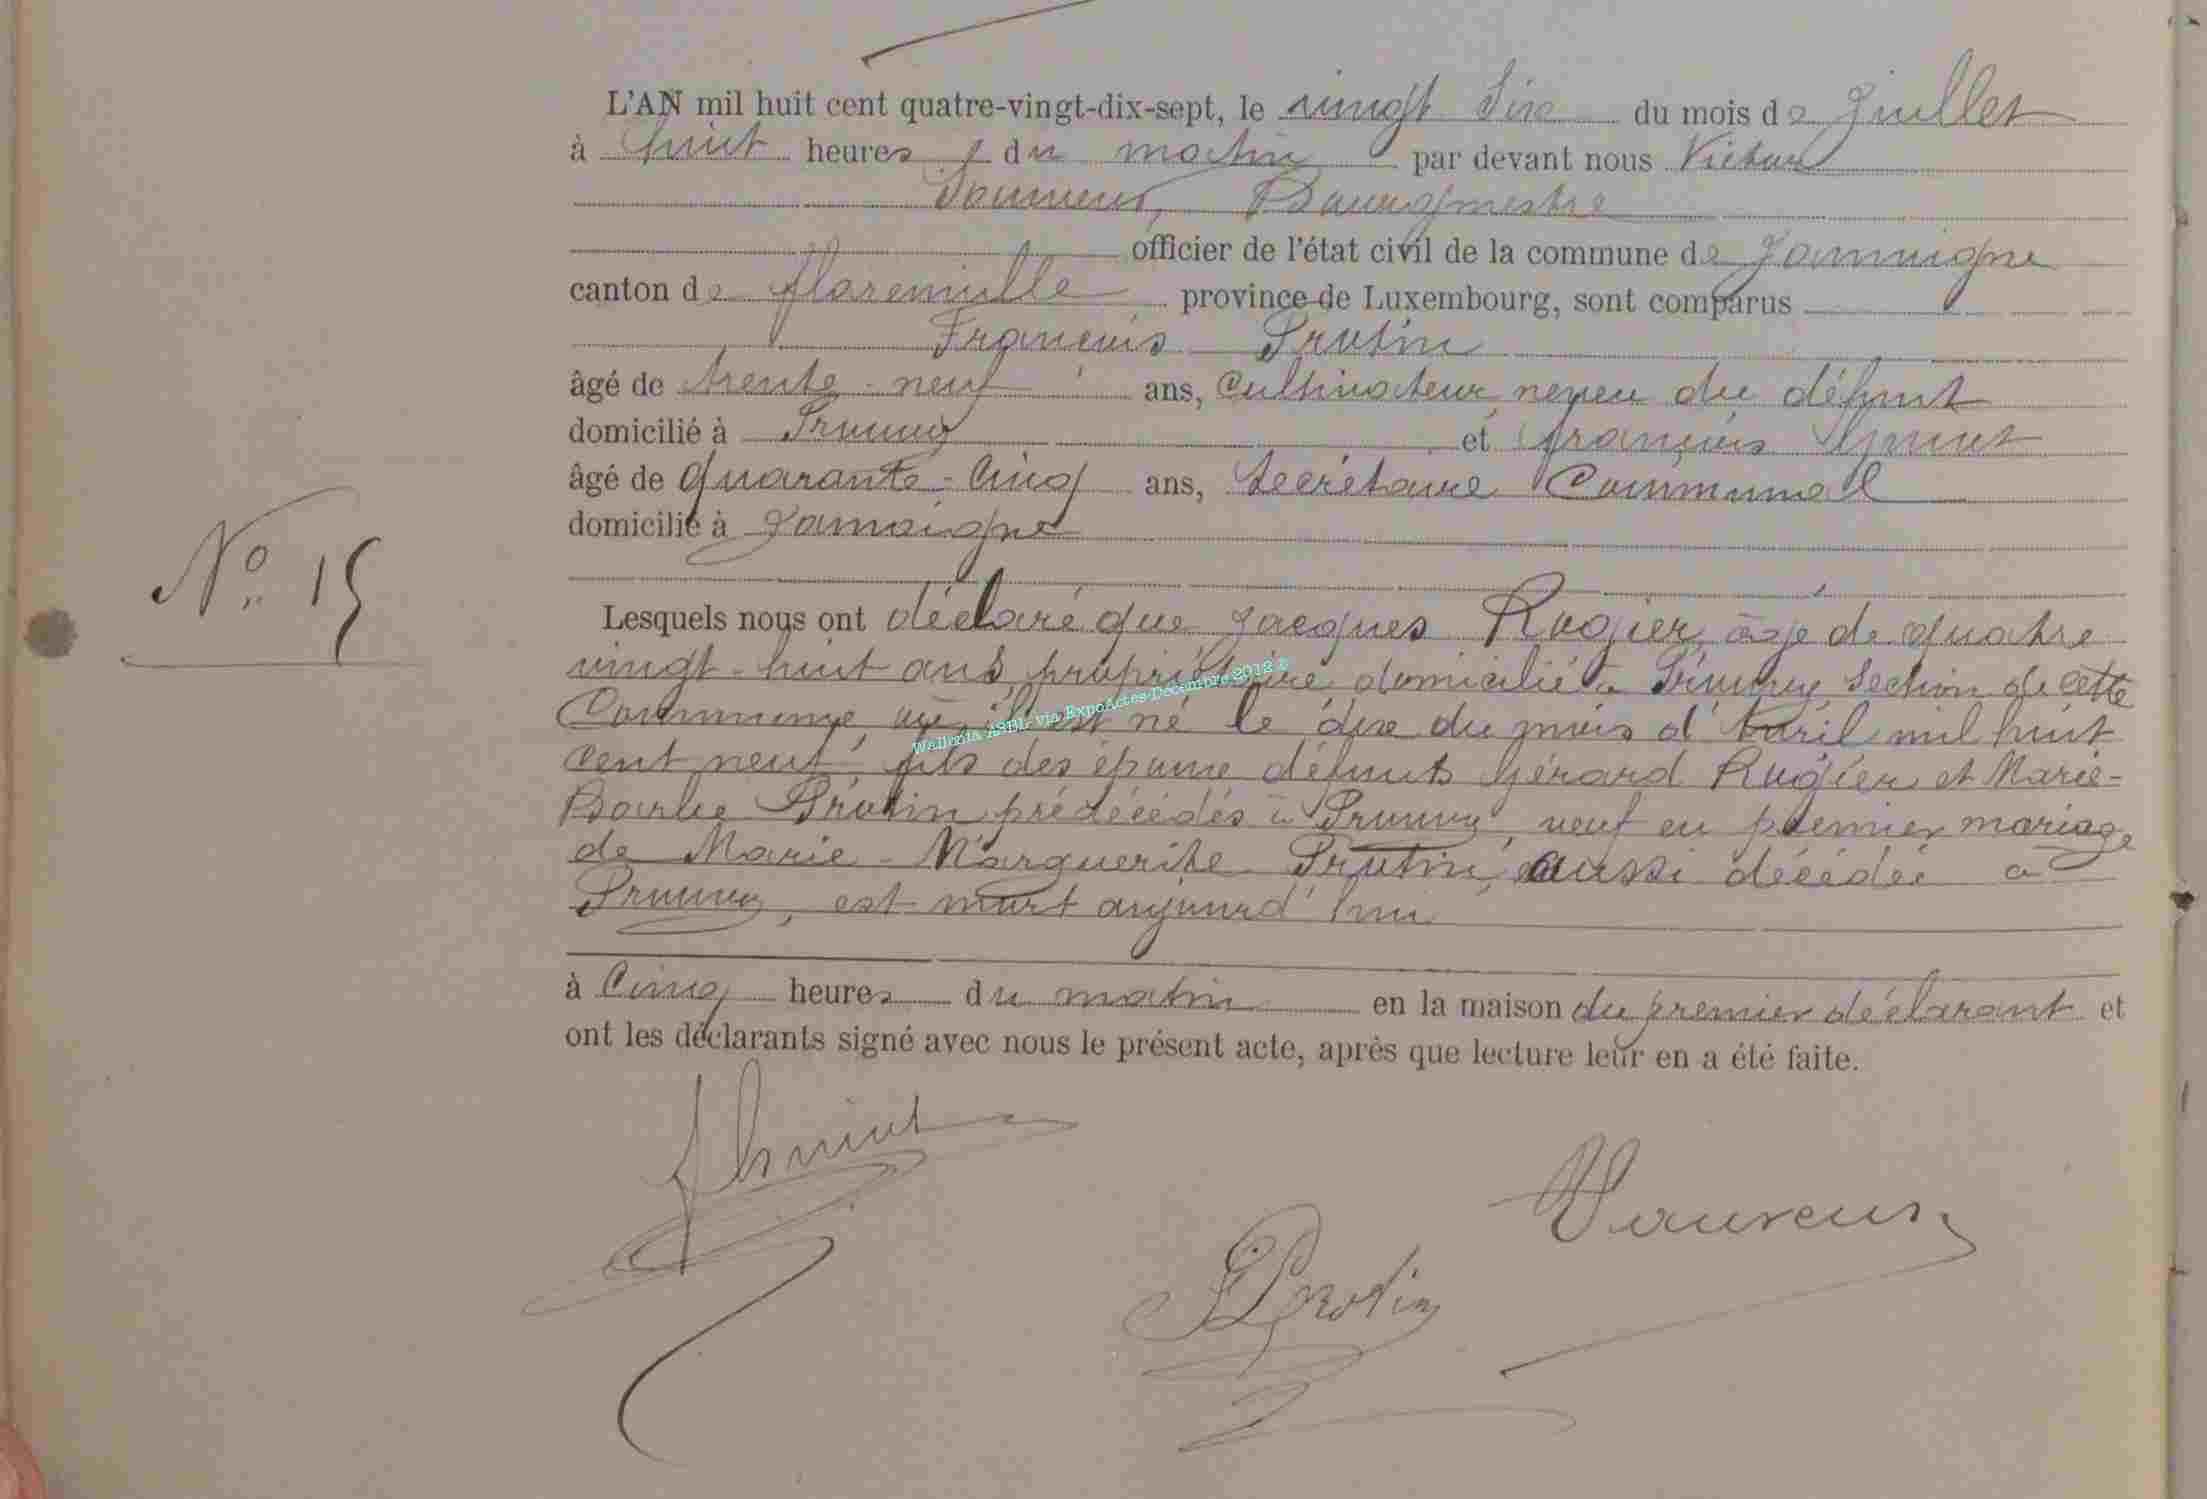 L'AN mil huit cent quatre-vingt-dix-sept, le vingt Six du mois de Juillet
à huit heures du matin par devant nous Victor
Bourgmestre
officier de l'état civil de la commune de Jamoigne
canton de florenville province de Luxembourg, sont comparus
François Protin
âgé de trente-neuf ans, Cultivateur, neveu du défunt
domicilié à Prouvy et françois
âgé de quarante-cinq ans, Secrétaire Communal
domicilié à Jamoigne
N° 15
Lesquels nous ont déclaré que Jacques Rogier, âgé de quatre
vingt-huit ans, propriétaire domicilié à Prouvy Section de cette
Commune, où il est né le dix du mois d'avril mil huit
cent neuf, fils des époux défunts Gérard Rogier et Marie-
Barbe Protin prédécédés à Prouvy, veuf en premier mariage
de Marie-Marguerite Protin, aussi décédée à
Prouvy, est mort aujourd'hui
à Cinq heures du matin en la maison du premier déclarant et
ont les déclarants signé avec nous le présent acte, après que lecture leur en a été faite.
Protin
Wallonia ASBL via ExpoActes-Décembre 2012 ©